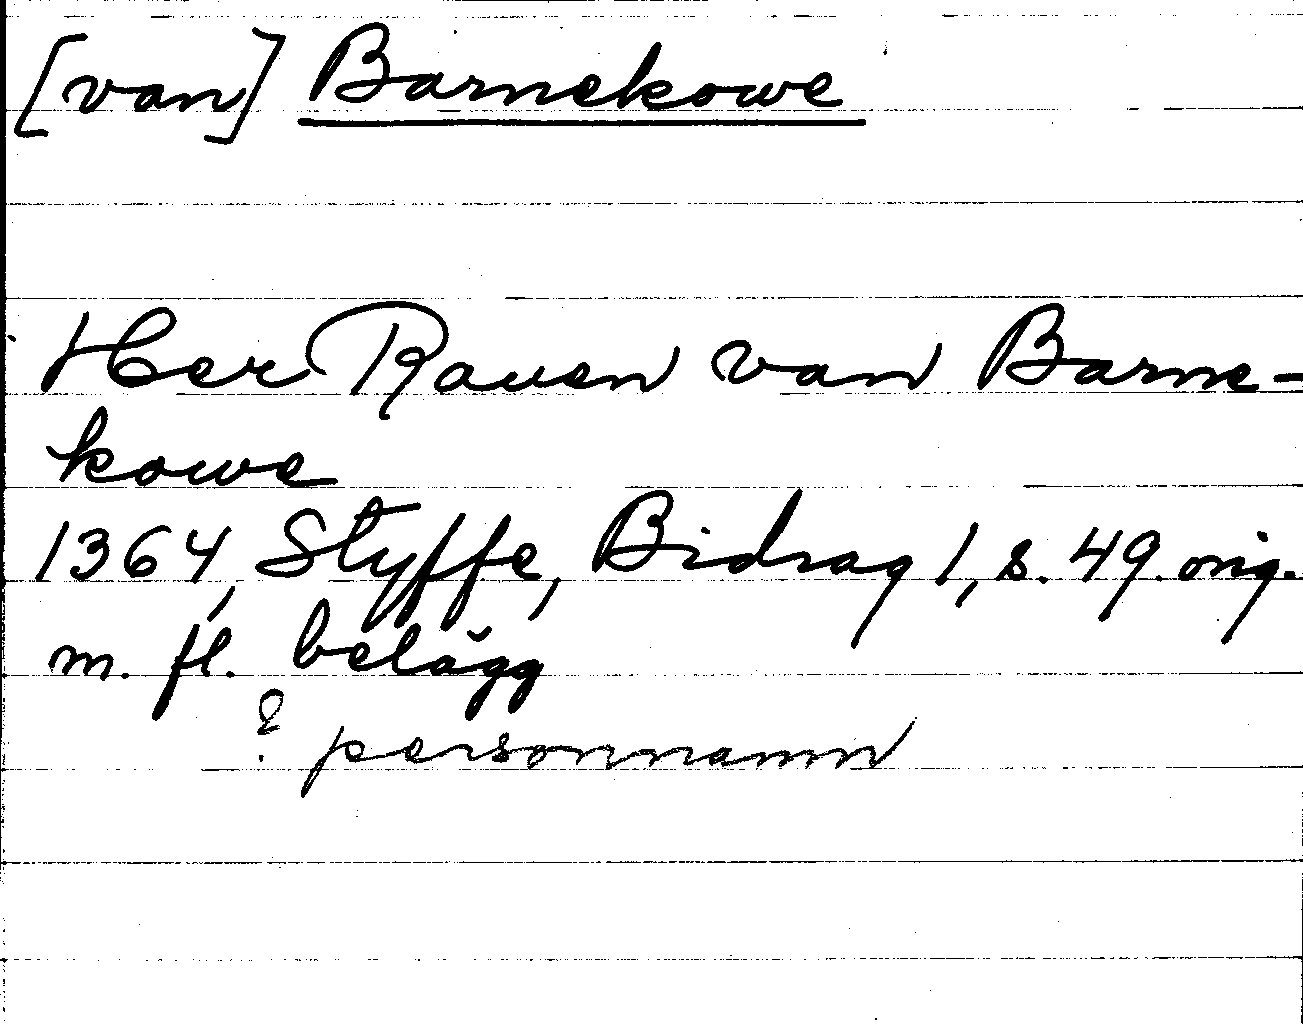 [van] Barnekowe
Her Rauen van Barne-
kowe
1364, Styffe, Bidrag 1, s. 49. orig.
m. fl. belägg
? personnamn